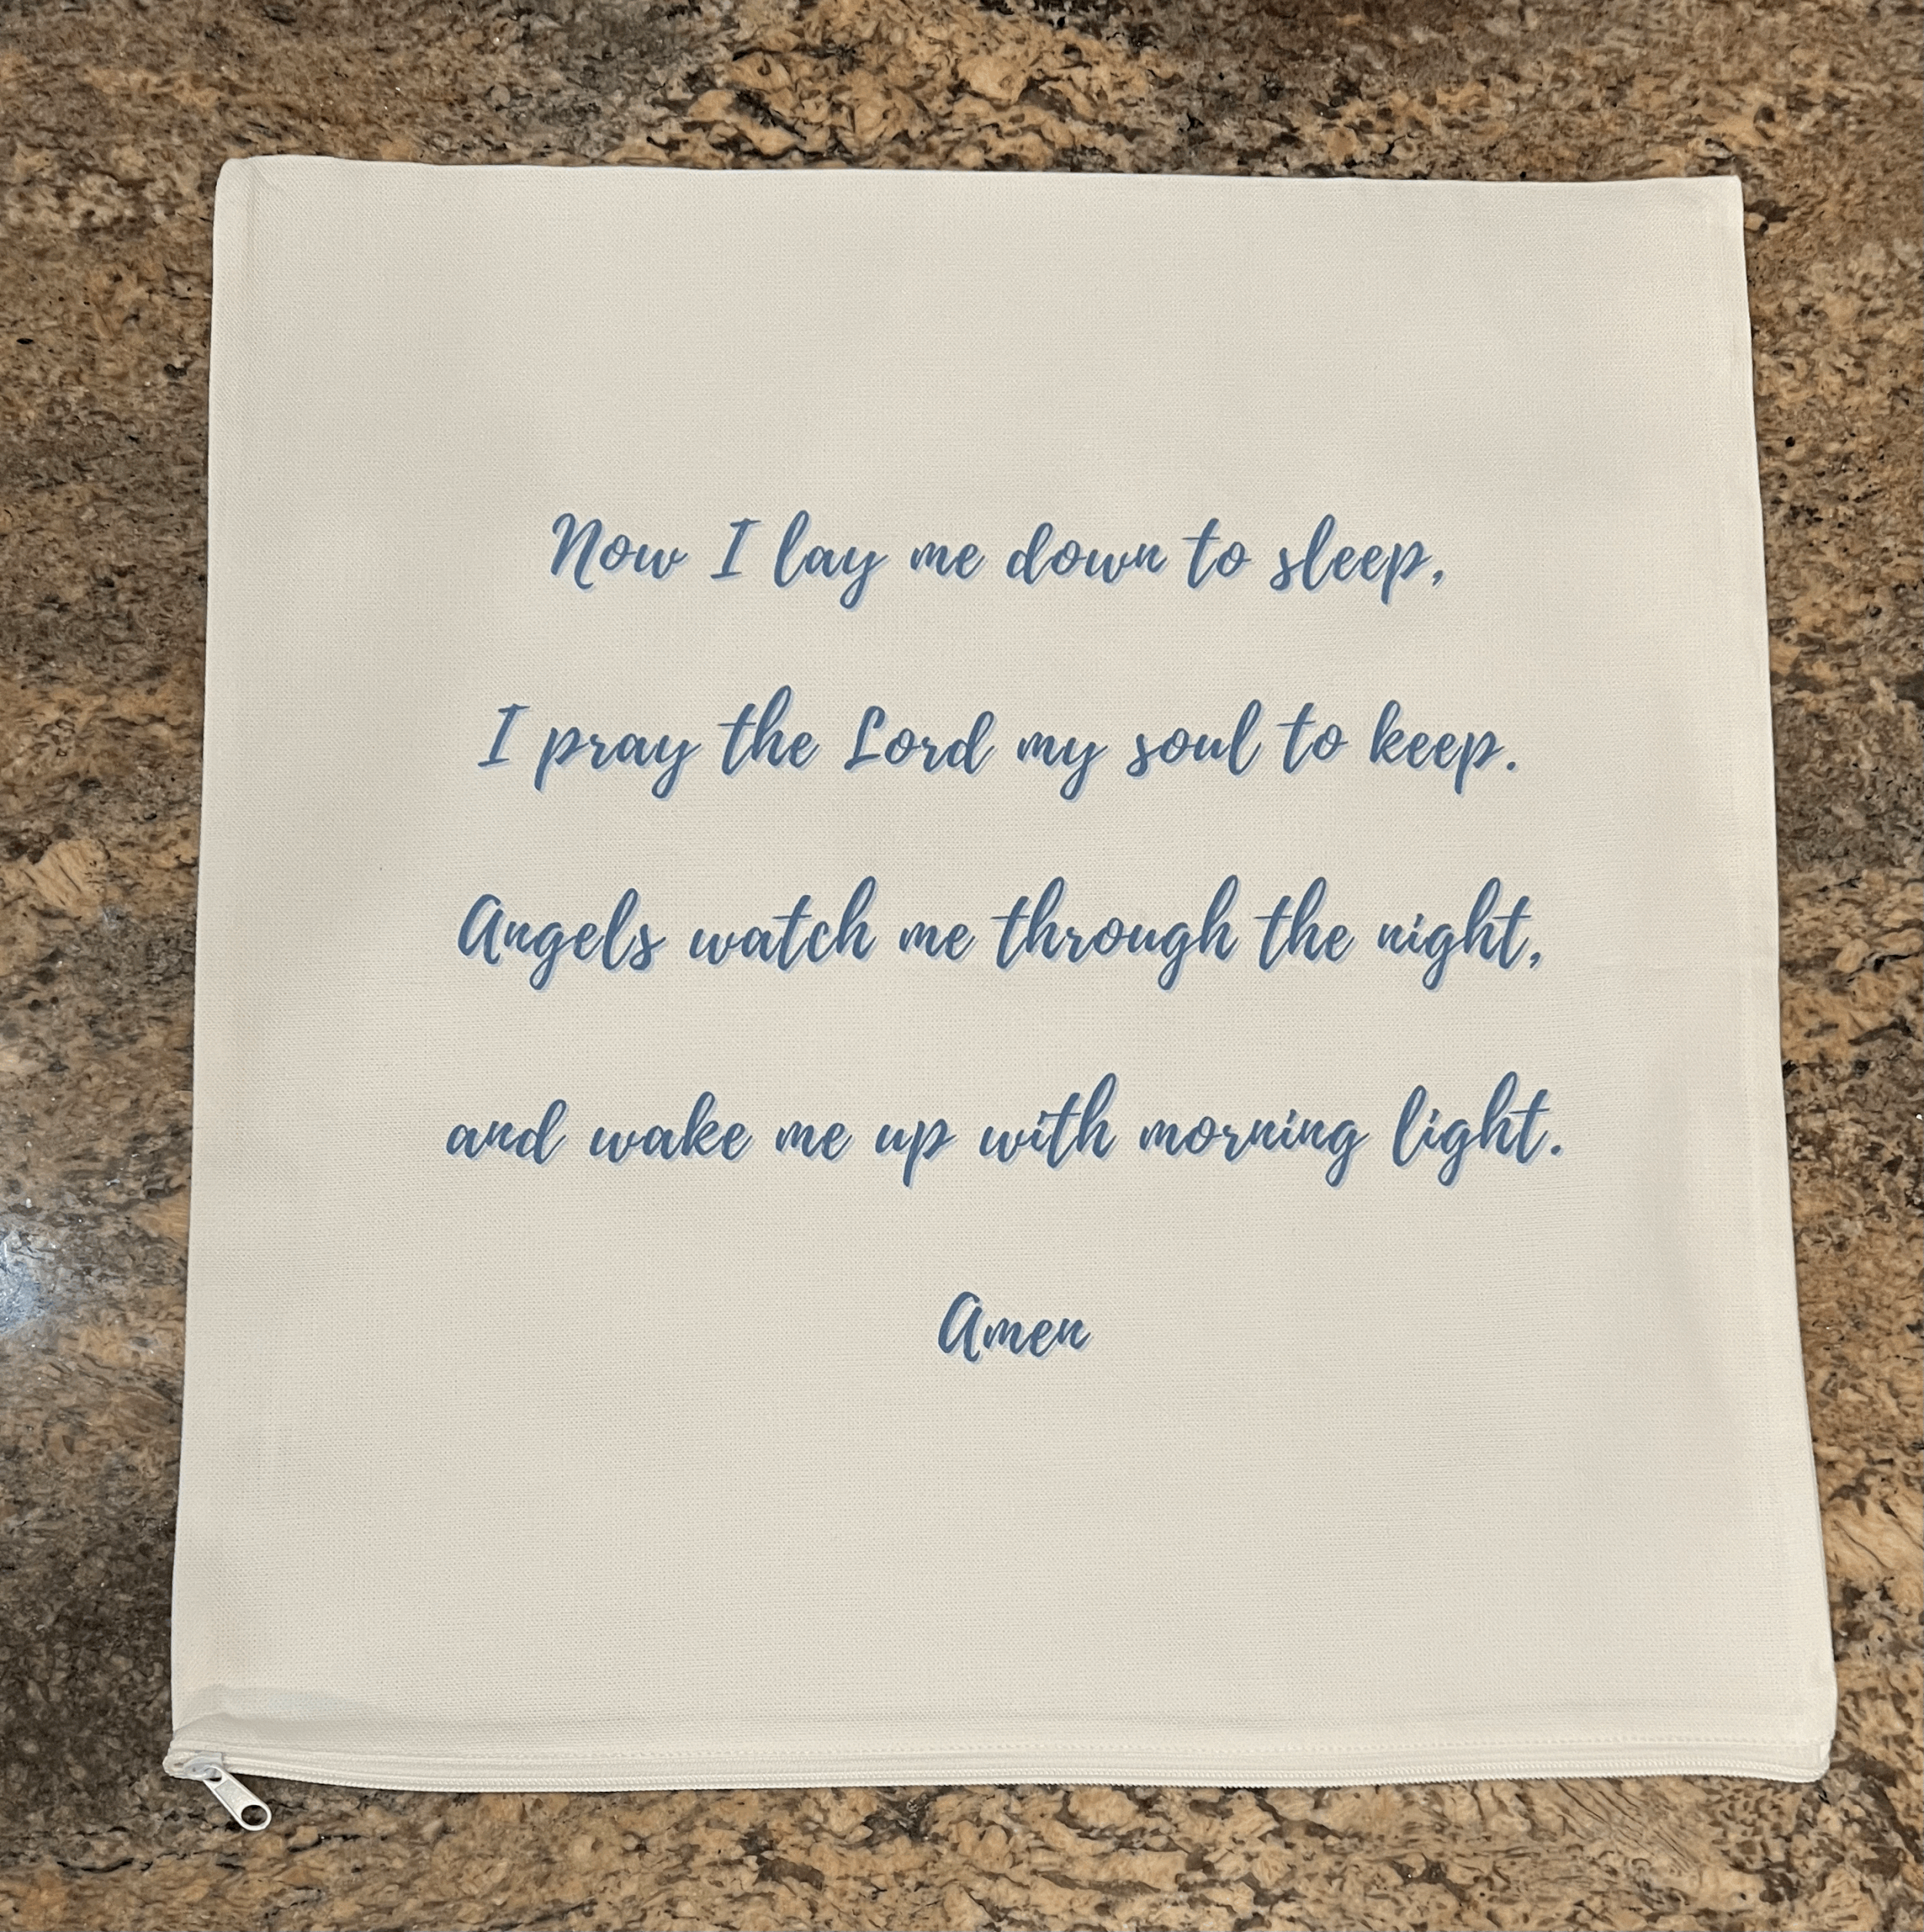 Now I lay me down to sleep,
I pray the Lord my soul to keep.
Angels watch me through the night,
and wake me up with morning light.
Amen